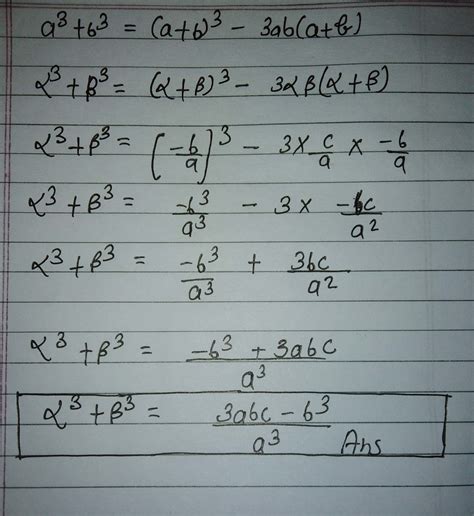 a³ + b³ = (a+b)³ - 3ab(a+b)
α³ + β³ = (α+β)³ - 3αβ(α+β)
α³ + β³ = (-b/a)³ - 3 × c/a × -b/a
α³ + β³ = -b³/a³ - 3 × -bc/a²
α³ + β³ = -b³/a³ + 3bc/a²
α³ + β³ = -b³ + 3abc/a³
α³ + β³ = 3abc - b³/a³ Ans